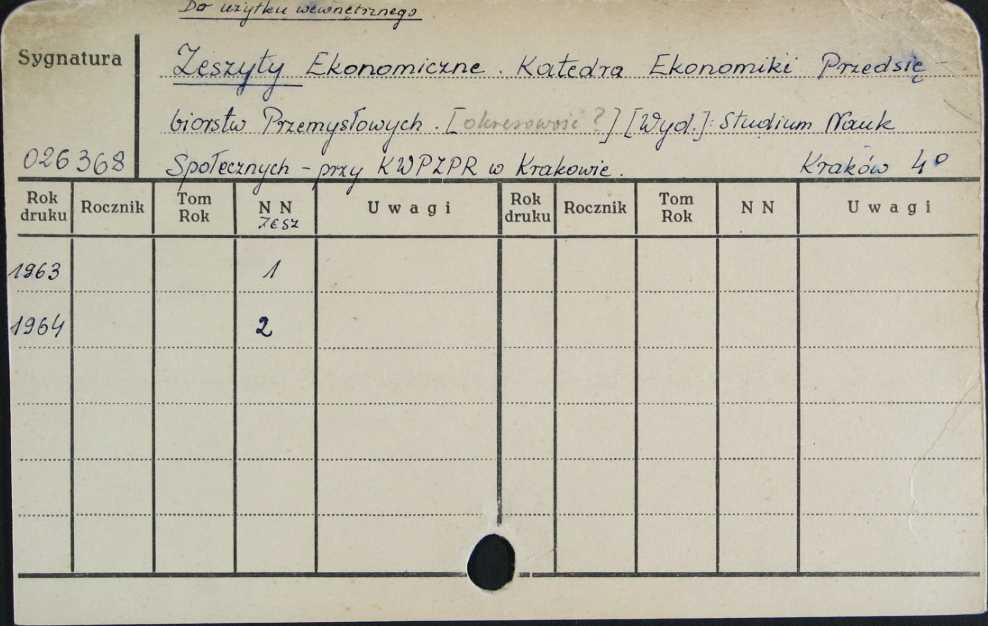 Do użytku wewnętrznego
Sygnatura
Zeszyty Ekonomiczne. Katedra Ekonomiki Przedsię-
biorstw Przemysłowych. [okresowość?] [Wyd.]: Studium Nauk
026368 Społecznych - przy KWPZPR w Krakowie. Kraków 4°
Rok druku Rocznik Tom Rok NN zesz Uwagi Rok druku Rocznik Tom Rok NN Uwagi
1963 1
1964 2